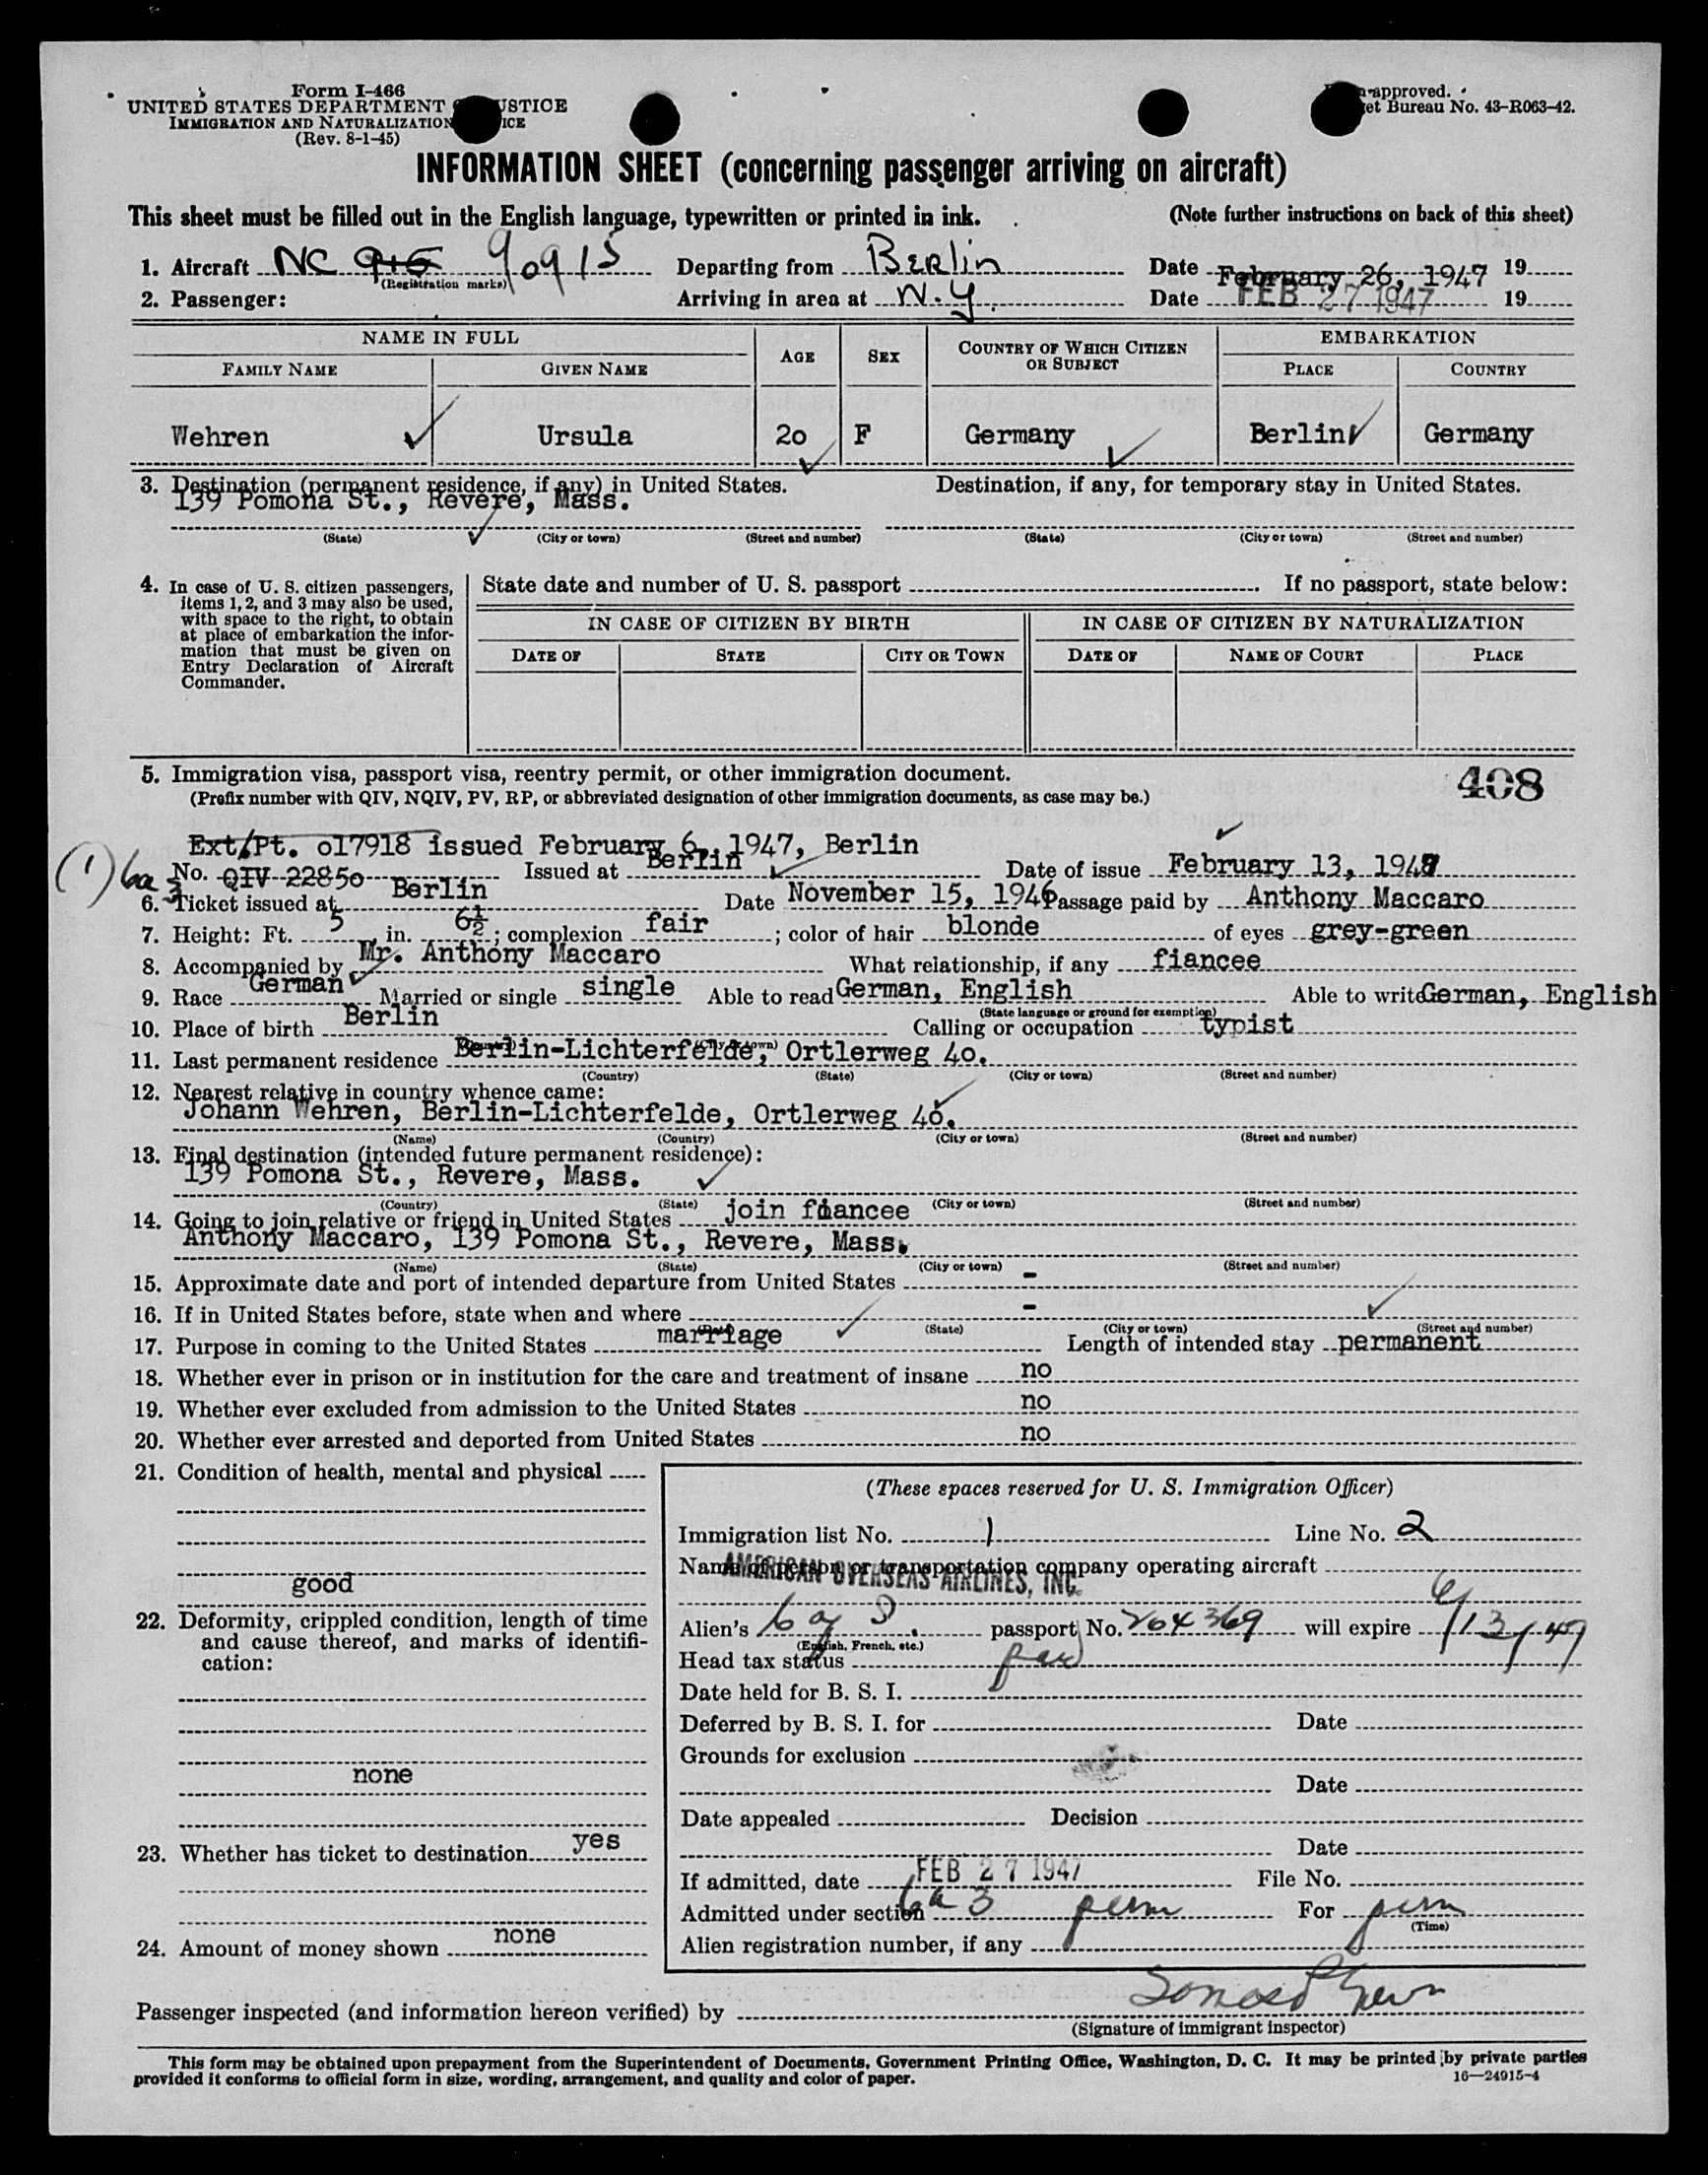 Form I-466
UNITED STATES DEPARTMENT JUSTICE
IMMIGRATION AND NATURALIZATION
(Rev. 8-1-45)
approved.
Bureau No. 43-R063-42.
INFORMATION SHEET (concerning passenger arriving on aircraft)
This sheet must be filled out in the English language, typewritten or printed in ink. (Note further instructions on back of this sheet)
1. Aircraft NC 90915 Departing from Berlin Date February 26, 1947 19
(Registration marks)
2. Passenger: Arriving in area at N.Y. Date FEB 27 1947 19
NAME IN FULL AGE SEX COUNTRY OF WHICH CITIZEN OR SUBJECT EMBARKATION
FAMILY NAME GIVEN NAME PLACE COUNTRY
Wehren Ursula 20 F Germany Berlin Germany
3. Destination (permanent residence, if any) in United States. Destination, if any, for temporary stay in United States.
139 Pomona St., Revere, Mass.
(State) (City or town) (Street and number) (State) (City or town) (Street and number)
4. In case of U. S. citizen passengers, items 1, 2, and 3 may also be used, with space to the right, to obtain at place of embarkation the information that must be given on Entry Declaration of Aircraft Commander.
State date and number of U. S. passport If no passport, state below:
IN CASE OF CITIZEN BY BIRTH IN CASE OF CITIZEN BY NATURALIZATION
DATE OF STATE CITY OR TOWN DATE OF NAME OF COURT PLACE
5. Immigration visa, passport visa, reentry permit, or other immigration document. 408
(Prefix number with QIV, NQIV, PV, RP, or abbreviated designation of other immigration documents, as case may be.)
Ext/Pt. 017918 issued February 6, 1947, Berlin
(1) 6a3 No. QIV 22850 Issued at Berlin Date of issue February 13, 1947
6. Ticket issued at Berlin Date November 15, 1946 Passage paid by Anthony Maccaro
7. Height: Ft. 5 in. 6½; complexion fair; color of hair blonde of eyes grey-green
8. Accompanied by Mr. Anthony Maccaro What relationship, if any fiancee
9. Race German Married or single single Able to read German, English Able to write German, English
(State language or ground for exemption)
10. Place of birth Berlin Calling or occupation typist
11. Last permanent residence Berlin-Lichterfelde, Ortlerweg 40.
(Country) (State) (City or town) (Street and number)
12. Nearest relative in country whence came:
Johann Wehren, Berlin-Lichterfelde, Ortlerweg 40.
(Name) (Country) (City or town) (Street and number)
13. Final destination (intended future permanent residence):
139 Pomona St., Revere, Mass.
(Country) (State) (City or town) (Street and number)
14. Going to join relative or friend in United States join fiancee
Anthony Maccaro, 139 Pomona St., Revere, Mass.
(Name) (State) (City or town) (Street and number)
15. Approximate date and port of intended departure from United States -
16. If in United States before, state when and where -
(State) (City or town) (Street and number)
17. Purpose in coming to the United States marriage Length of intended stay permanent
18. Whether ever in prison or in institution for the care and treatment of insane no
19. Whether ever excluded from admission to the United States no
20. Whether ever arrested and deported from United States no
21. Condition of health, mental and physical
good
22. Deformity, crippled condition, length of time and cause thereof, and marks of identification:
none
23. Whether has ticket to destination yes
24. Amount of money shown none
(These spaces reserved for U. S. Immigration Officer)
Immigration list No. 1 Line No. 2
Name of person or transportation company operating aircraft
AMERICAN OVERSEAS AIRLINES, INC.
Alien's passport No. 204369 will expire 6/13/47
(English, French, etc.)
Head tax status
Date held for B. S. I.
Deferred by B. S. I. for Date
Grounds for exclusion
Date
Date appealed Decision
Date
If admitted, date FEB 27 1947 File No.
Admitted under section 6a3 perm For perm
(Time)
Alien registration number, if any
Passenger inspected (and information hereon verified) by
(Signature of immigrant inspector)
This form may be obtained upon prepayment from the Superintendent of Documents, Government Printing Office, Washington, D. C. It may be printed by private parties
provided it conforms to official form in size, wording, arrangement, and quality and color of paper. 16—24915-4